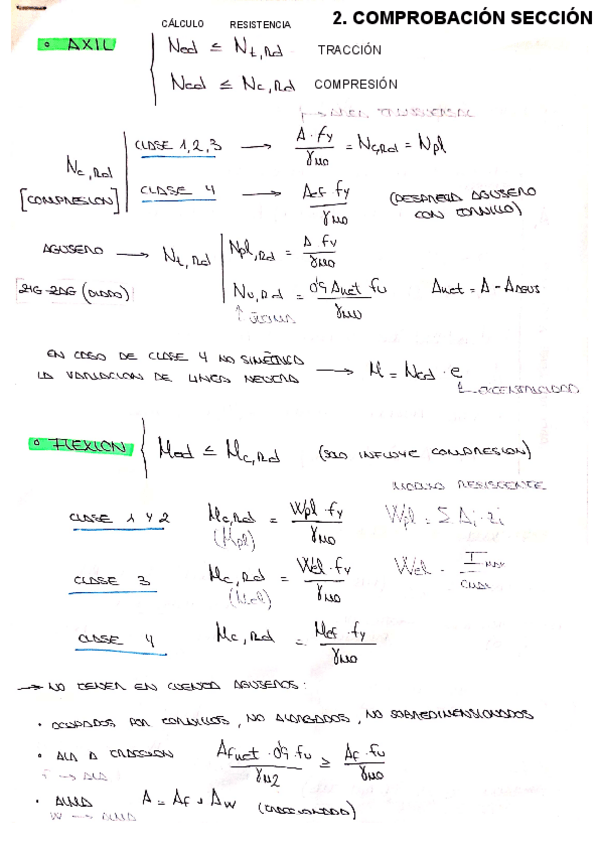 CÁLCULO RESISTENCIA 2. COMPROBACIÓN SECCIÓN
• AXIL Ned ≤ Nt,Rd TRACCIÓN
Ned ≤ Nc,Rd COMPRESIÓN
→ AREA TRANSVERSAL
CLASE 1,2,3 → A · fy / γM0 = Nc,Rd = Npl
Nc,Rd
[COMPRESION]
CLASE 4 → Aef fy / γM0 (DESPRECIA AGUJERO
CON TORNILLO)
AGUJERO → Nt,Rd Npl,Rd = A fy / γM0
Nu,Rd = 0'9 Anet fu / γM0 Anet = A - AAGUJ
↑ ÚLTIMA
EN CASO DE CLASE 4 NO SIMÉTRICA
LA VARIACION DE LINEA NEUTRA → M = Ned · e
EXCENTRICIDAD
• FLEXION Med ≤ Mc,Rd (SOLO INFLUYE COMPRESION)
MODULO RESISTENTE
CLASE 1 Y 2 Mc,Rd = Wpl · fy / γM0 Wpl = Σ Ai · zi
(Mpl)
CLASE 3 Mc,Rd = Wel · fy / γM0 Wel = I / MAX
(Mel)
CLASE 4 Mc,Rd = Mef · fy / γM0
→ NO TENER EN CUENTA AGUJEROS:
• OCUPADOS POR TORNILLOS, NO ALARGADOS, NO SOBREDIMENSIONADOS
• ALA A TRACCION Afnet · 0'9 · fu / γM2 ≥ Af · fu / γM0
f → ALA
• ALMA A = Af + Aw (TRACCIONADO)
W → ALMA